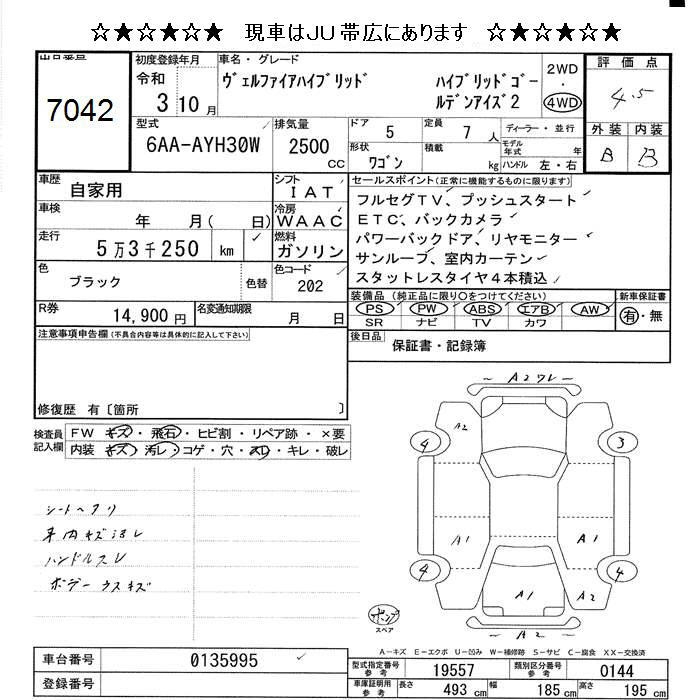 ☆★☆★☆★ 現車はJU帯広にあります ☆★☆★☆★
出品番号
7042
初度登録年月
令和
3 10 月
車名・グレード
ヴェルファイアハイブリッド
ハイブリッドゴー
ルデンアイズ2
2WD
・
4WD
評価点
4.5
外装 内装
B B
型式
6AA-AYH30W
排気量
2500
CC
ドア 5
定員 7 人
ディーラー・並行
形状
ワゴン
積載 kg
モデル年式 年
ハンドル 左・右
車歴
自家用
シフト
IAT
車検
年 月( 日)
冷房
WAAC
走行
5万3千250 km
燃料
ガソリン
色
ブラック
色替
色コード
202
R券
14,900 円
名変通知期限
月 日
セールスポイント(正常に機能するものに限ります)
フルセグTV、プッシュスタート
ETC、バックカメラ
パワーバックドア、リヤモニター
サンルーフ、室内カーテン
スタットレスタイヤ4本積込
装備品 (純正品に限り○をつけてください)
PS PW ABS エアB AW
SR ナビ TV カワ
新車保証書
有・無
後日品
保証書・記録簿
注意事項申告欄(不具合内容等は具体的に記入して下さい)
修復歴 有〔箇所 〕
検査員
記入欄
FW キズ・飛石・ヒビ割・リペア跡・×要
内装 キズ・汚レ・コゲ・穴・スレ・キレ・破レ
シートヘタリ
車内キズ汚レ
ハンドルスレ
ボデーウスキズ
A2ワレ
A2
4
3
A1
A1
4
4
A1
A2
A2
スペア
A-キズ E-エクボ U-凹み W-補修跡 S-サビ C-腐食 XX-交換済
車台番号 0135995
登録番号
型式指定番号
参考
19557
類別区分番号
参考
0144
車庫証明用
参考
長さ 493 cm
幅 185 cm
高さ 195 cm